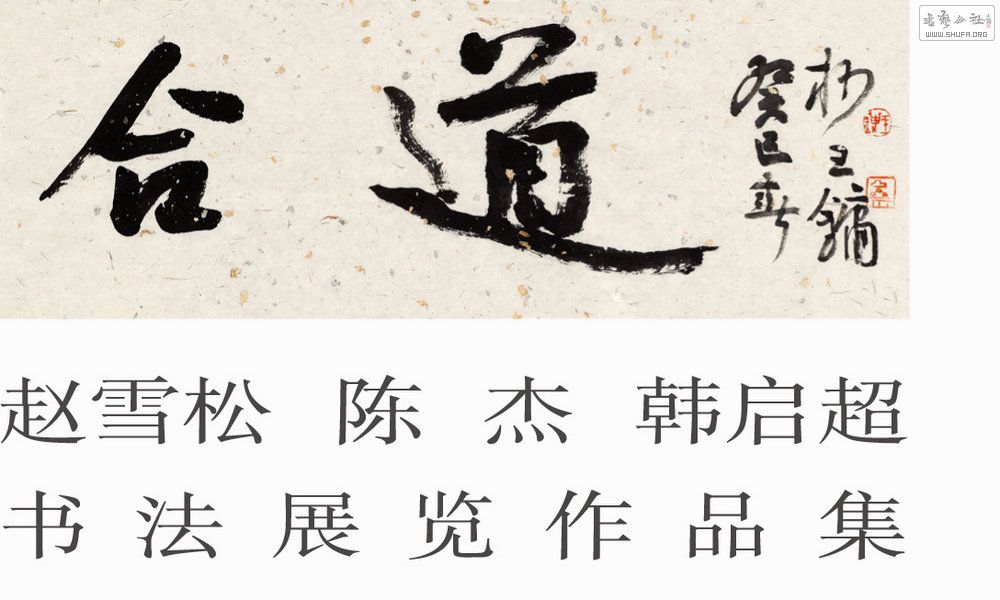 合道
癸巳春
柳王镛
书艺公社
WWW.SHUFA.ORG
赵雪松 陈杰 韩启超
书法展览作品集